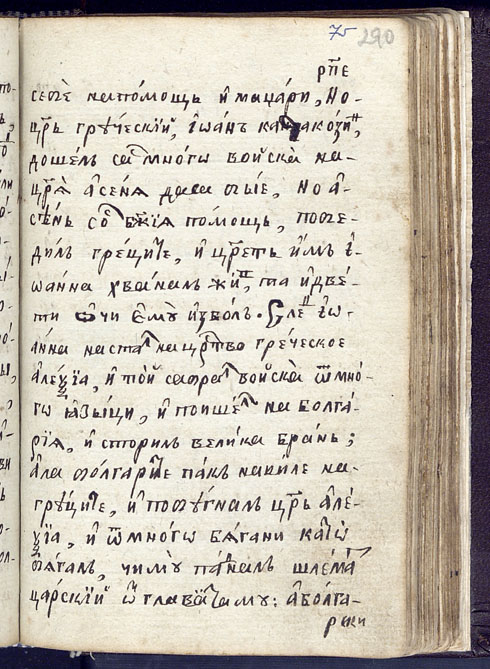 290
рп҃е
себѣ на помощь и маџари, Но
цр҃ь грꙋческїй, їѡанъ
дошелъ са много войска на
цр҃ѧ асенѧ да га бїе, Но а-
сѣнь со бж҃їѧ помощь, побе-
дилъ греците, и цр҃етъ имъ ї-
ѡанна хваналъ живъ, та и две-
ти ѡчи емꙋ изболъ. Следъ їѡ-
анна насталъ на црⷭ҇тво греческое
алеѯїа, и той сабралъ войска ѿ мно-
го ѧзыци, и пошелъ на болга-
рїѧ, и сторилъ велика брань;
ала болгарите пакъ навиле на
грꙋците, и погꙋгналъ цр҃ь але-
ѯїа, и ѿ много бѧгани като
бѧгалъ, чимꙋ падналъ шлемъ
царскїй ѿ главатамꙋ: а болга-
рски